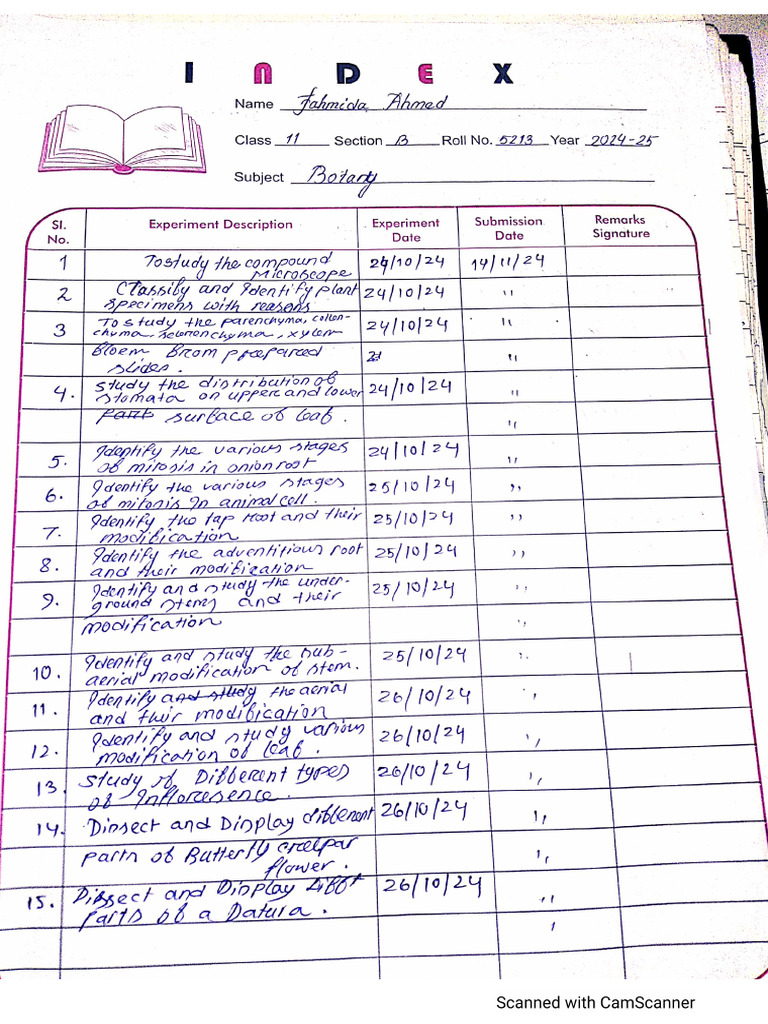 INDEX
Name Fahmida Ahmed
Class 11 Section B Roll No. 5213 Year 2024-25
Subject Botany
Sl. No. Experiment Description Experiment Date Submission Date Remarks Signature
1 To study the compound 24/10/24 14/11/24
Microscope
2 Classify and Identify plant 24/10/24 "
specimens with reasons
3 To study the parenchyma, collen- 24/10/24 "
chyma, sclerenchyma, xylem
floem from prepared "
slides.
4. Study the distribution of 24/10/24 "
stomata on upper and lower
part surface of leaf. "
5. Identify the various stages 24/10/24 "
of mitosis in onion root
6. Identify the various stages 25/10/24 "
of mitosis in animal cell.
7. Identify the tap root and their 25/10/24 "
modification
8. Identify the adventitious root 25/10/24 "
and their modification
9. Identify and study the under- 25/10/24 "
ground stems and their
modification "
10. Identify and study the sub- 25/10/24 "
aerial modification of stem.
11. Identify and study the aerial 26/10/24 "
and their modification
12. Identify and study various 26/10/24 "
modification of leaf.
13. Study of Different types 26/10/24 "
of Infloresence.
14. Dissect and Display different 26/10/24 "
parts of Butterfly creepar "
flower.
15. Dissect and Display Difft 26/10/24 "
parts of a Datura.
Scanned with CamScanner